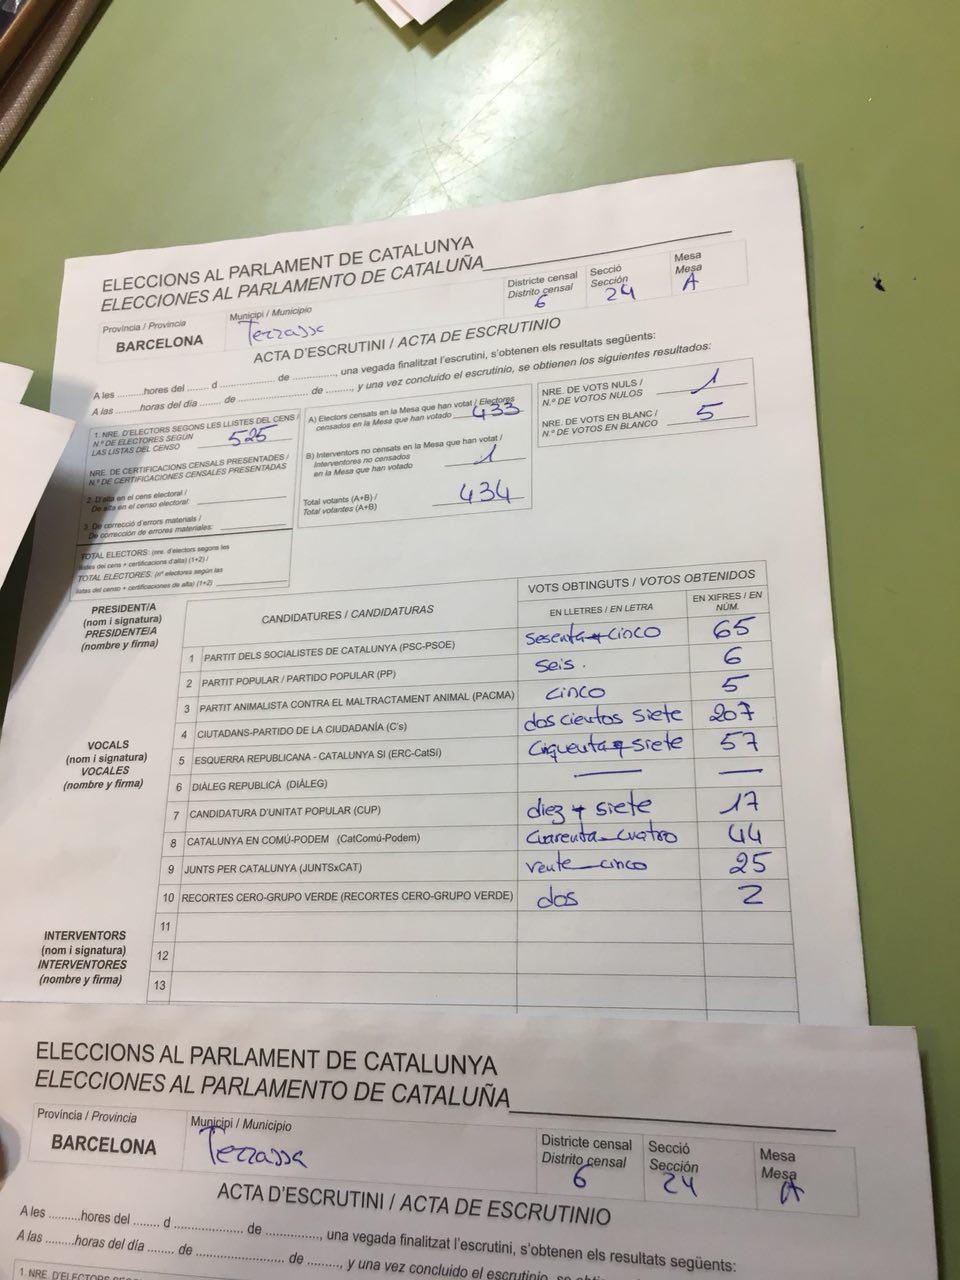 ELECCIONS AL PARLAMENT DE CATALUNYA
ELECCIONES AL PARLAMENTO DE CATALUÑA
Província / Provincia
BARCELONA
Municipi / Municipio
Terrassa
Districte censal
Distrito censal
6
Secció
Sección
24
Mesa
Mesa
A
ACTA D'ESCRUTINI / ACTA DE ESCRUTINIO
A les .........hores del ....... d ...................... de ............., una vegada finalitzat l'escrutini, s'obtenen els resultats següents:
A las .........horas del día ....... de ...................... de ........, y una vez concluido el escrutinio, se obtienen los siguientes resultados:
1. NRE. D'ELECTORS SEGONS LES LLISTES DEL CENS /
N.º DE ELECTORES SEGÚN
LAS LISTAS DEL CENSO
525
NRE. DE CERTIFICACIONS CENSALS PRESENTADES /
N.º DE CERTIFICACIONES CENSALES PRESENTADAS
2. D'alta en el cens electoral /
De alta en el censo electoral:
3. De correcció d'errors materials /
De corrección de errores materiales:
TOTAL ELECTORS: (nre. d'electors segons les
llistes del cens + certificacions d'alta) (1+2) /
TOTAL ELECTORES: (nº electores según las
listas del censo + certificaciones de alta) (1+2)
A) Electors censats en la Mesa que han votat / Electores
censados en la Mesa que han votado
433
B) Interventors no censats en la Mesa que han votat /
Interventores no censados
en la Mesa que han votado
1
Total votants (A+B) /
Total votantes (A+B)
434
NRE. DE VOTS NULS /
N.º DE VOTOS NULOS
1
NRE. DE VOTS EN BLANC /
N.º DE VOTOS EN BLANCO
5
PRESIDENT/A
(nom i signatura)
PRESIDENTE/A
(nombre y firma)
VOCALS
(nom i signatura)
VOCALES
(nombre y firma)
INTERVENTORS
(nom i signatura)
INTERVENTORES
(nombre y firma)
CANDIDATURES / CANDIDATURAS
VOTS OBTINGUTS / VOTOS OBTENIDOS
EN LLETRES / EN LETRA
EN XIFRES / EN NÚM.
1 PARTIT DELS SOCIALISTES DE CATALUNYA (PSC-PSOE) sesenta y cinco 65
2 PARTIT POPULAR / PARTIDO POPULAR (PP) seis. 6
3 PARTIT ANIMALISTA CONTRA EL MALTRACTAMENT ANIMAL (PACMA) cinco 5
4 CIUTADANS-PARTIDO DE LA CIUDADANÍA (C's) doscientos siete 207
5 ESQUERRA REPUBLICANA - CATALUNYA SÍ (ERC-CatSí) ciquenta y siete 57
6 DIÀLEG REPUBLICÀ (DIÀLEG) — —
7 CANDIDATURA D'UNITAT POPULAR (CUP) diez y siete 17
8 CATALUNYA EN COMÚ-PODEM (CatComú-Podem) cuarenta_cuatro 44
9 JUNTS PER CATALUNYA (JUNTSxCAT) vente_cinco 25
10 RECORTES CERO-GRUPO VERDE (RECORTES CERO-GRUPO VERDE) dos 2
11
12
13
ELECCIONS AL PARLAMENT DE CATALUNYA
ELECCIONES AL PARLAMENTO DE CATALUÑA
Província / Provincia
BARCELONA
Municipi / Municipio
Terrassa
Districte censal
Distrito censal
6
Secció
Sección
24
Mesa
Mesa
A
ACTA D'ESCRUTINI / ACTA DE ESCRUTINIO
A les ..........hores del ........ d ...................... de ............., una vegada finalitzat l'escrutini, s'obtenen els resultats següents:
A las ..........horas del día ........ de ...................... de .........., y una vez concluido el escrutinio, se